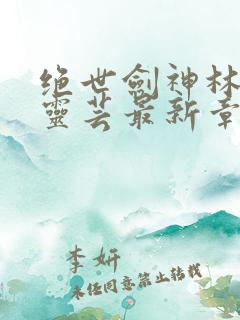 绝世劍神林
靈芸最新章
李妍
未经同意禁止转载